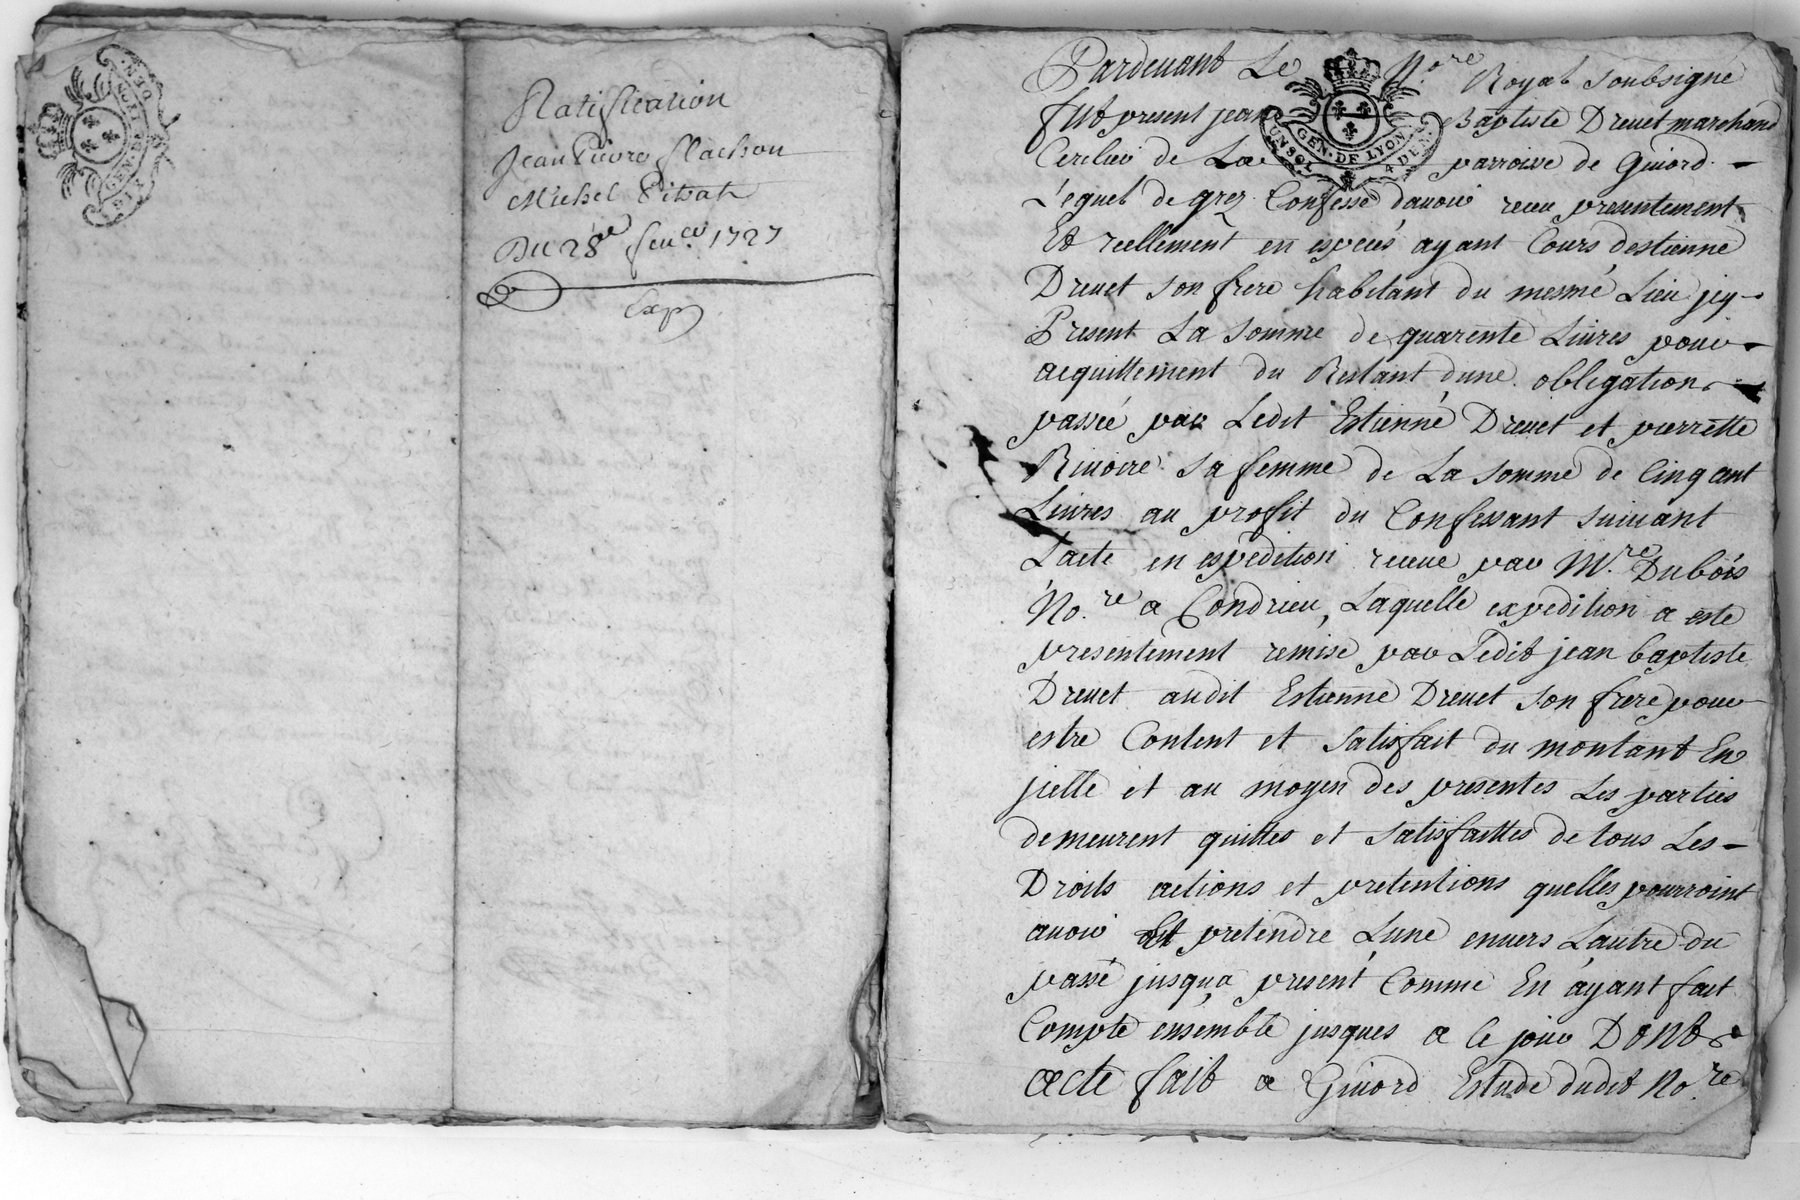 GEN. DE LYON
DEN.
Ratiffication
Jean Pierre Flachon
Michel Pitrat
Du 28e feu.er 1727
Exp
Pardeuant Le No.re Royal soubsigné
fut present jean Baptiste Dreuet marchand
GEN. DE LYON.
UN SOL 4 DEN.
Cerclier de La parroisse de Giuord
Lequel de grez Confesse dauoir receu presentement
Et reellement en especes ayant Cours destienne
Dreuet son frere habitant du mesme Lieu jcy
Present La somme de quarente Liures pour
acquittement du Restant dune obligation
passeé par Ledit Estienne Dreuet et pierrette
Riuoire sa femme de La somme de Cinq cant
Liures au profit du Confessant suiuant
Lacte en expedition receue par M.re Dubois
No.re a Condrieu, Laquelle expedition a esté
presentement remise par Ledit jean baptiste
Dreuet audit Estienne Dreuet son frere pour
estre Content et satisfait du montant En
jcelle et au moyen des presentes Les parties
demeurent quittes et satisfaittes de tous Les
Droits actions et pretentions quelles pourroint
auoir Et pretendre Lune enuers Lautre du
passé jusqua present Comme En ayant fait
Compte ensemble jusques a Ce jour Dont
acte fait a Giuord Estude dudit No.re